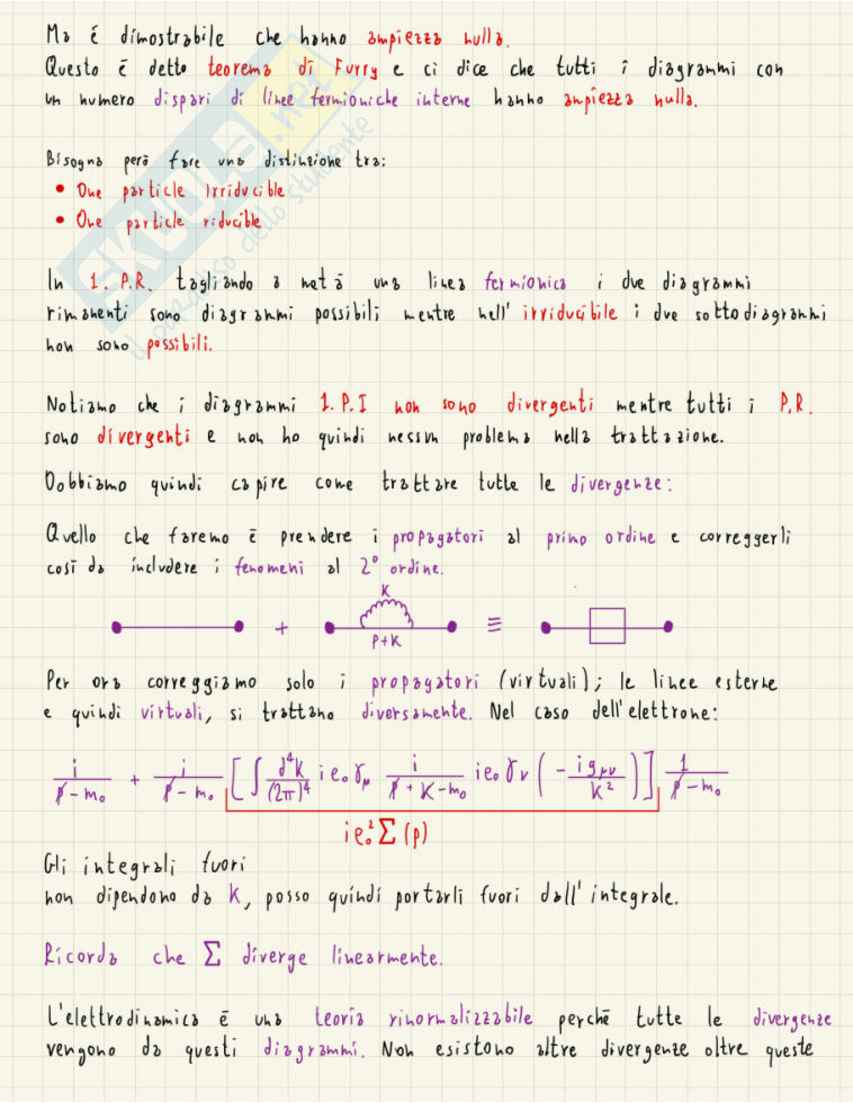 Ma é dimostrabile che hanno ampiezza nulla.
Questo è detto teorema di Furry e ci dice che tutti i diagrammi con
un numero dispari di linee fermioniche interne hanno ampiezza nulla.
Bisogna però fare una distinzione tra:
• One particle Irriducible
• One particle riducible
In 1. P.R. tagliando a metà una linea fermionica i due diagrammi
rimanenti sono diagrammi possibili mentre nell' irriducibile i due sottodiagrammi
non sono possibili.
Notiamo che i diagrammi 1.P.I non sono divergenti mentre tutti i P.R.
sono divergenti e non ho quindi nessun problema nella trattazione.
Dobbiamo quindi capire come trattare tutte le divergenze:
Quello che faremo è prendere i propagatori al primo ordine e correggerli
così da includere i fenomeni al 2° ordine.
K
+ ≡
P+K
Per ora correggiamo solo i propagatori (virtuali); le linee esterne
e quindi virtuali, si trattano diversamente. Nel caso dell'elettrone:
i/(p̸ - m₀) + i/(p̸ - m₀) [∫ d⁴K/(2π)⁴ i e₀ γμ i/(p̸ + K - m₀) i e₀ γν (- i gμν/K²)] 1/(p̸ - m₀)
i e₀² Σ(p)
Gli integrali fuori
non dipendono da K, posso quindi portarli fuori dall'integrale.
Ricorda che Σ diverge linearmente.
L'elettrodinamica è una teoria rinormalizzabile perchè tutte le divergenze
vengono da questi diagrammi. Non esistono altre divergenze oltre queste
SKUOLA.net
il paradiso dello studente